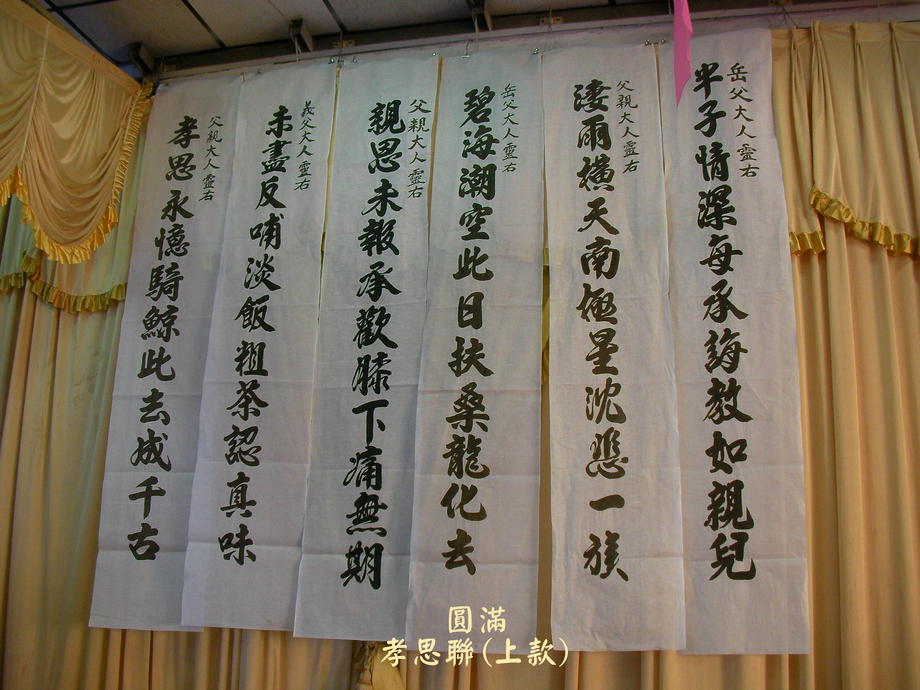 岳父大人靈右
半子情深每承誨教如親兒
父親大人靈右
淒雨橫天南極星沈悲一族
岳父大人靈右
碧海潮空此日扶桑龍化去
父親大人靈右
親恩未報承歡膝下痛無期
義父大人靈右
未盡反哺淡飯粗茶認真味
父親大人靈右
孝思永憶騎鯨此去成千古
圓滿
孝思聯(上款)